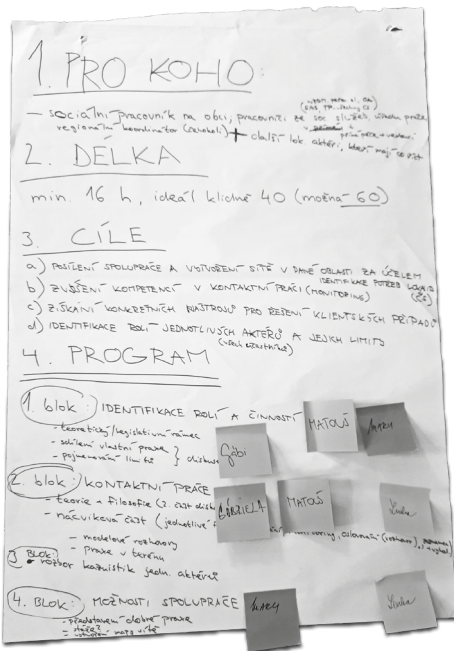 1. PRO KOHO:
— sociální pracovník na obci, pracovníci ze soc služeb, úřadu práce
regionální koordinátor + další lok. aktéři, kteří mají co říct
2. DÉLKA
min. 16 h, ideál klidně 40 (možná 60)
3. CÍLE
a) POSÍLENÍ SPOLUPRÁCE A VYTVOŘENÍ SÍTĚ V DANÉ OBLASTI ZA ÚČELEM
IDENTIFIKACE POTŘEB
b) ZVÝŠENÍ KOMPETENCÍ V KONTAKTNÍ PRÁCI (MONITORING)
c) ZÍSKÁNÍ KONKRÉTNÍCH NÁSTROJŮ PRO ŘEŠENÍ KLIENTSKÝCH PŘÍPADŮ
d) IDENTIFIKACE ROLÍ JEDNOTLIVÝCH AKTÉRŮ A JEJICH LIMITŮ
(všech účastníků)
4. PROGRAM
1. blok: IDENTIFIKACE ROLÍ A ČINNOSTÍ
- teoretický/legislativní rámec
- sdílení vlastní praxe
- pojmenování limitů } diskuse
Gábi
MATOUŠ
2. blok: KONTAKTNÍ PRÁCE
- teorie a filosofie (2. část
- nácviková část (jednotlivé
GABRIELA
MATOUŠ
Lenka
- modelové rozhovory
- praxe v terénu
3. BLOK:
rozbor kazuistik jedn. aktérů
4. BLOK: MOŽNOSTI SPOLUPRÁCE
- představení dobré praxe
Lenka